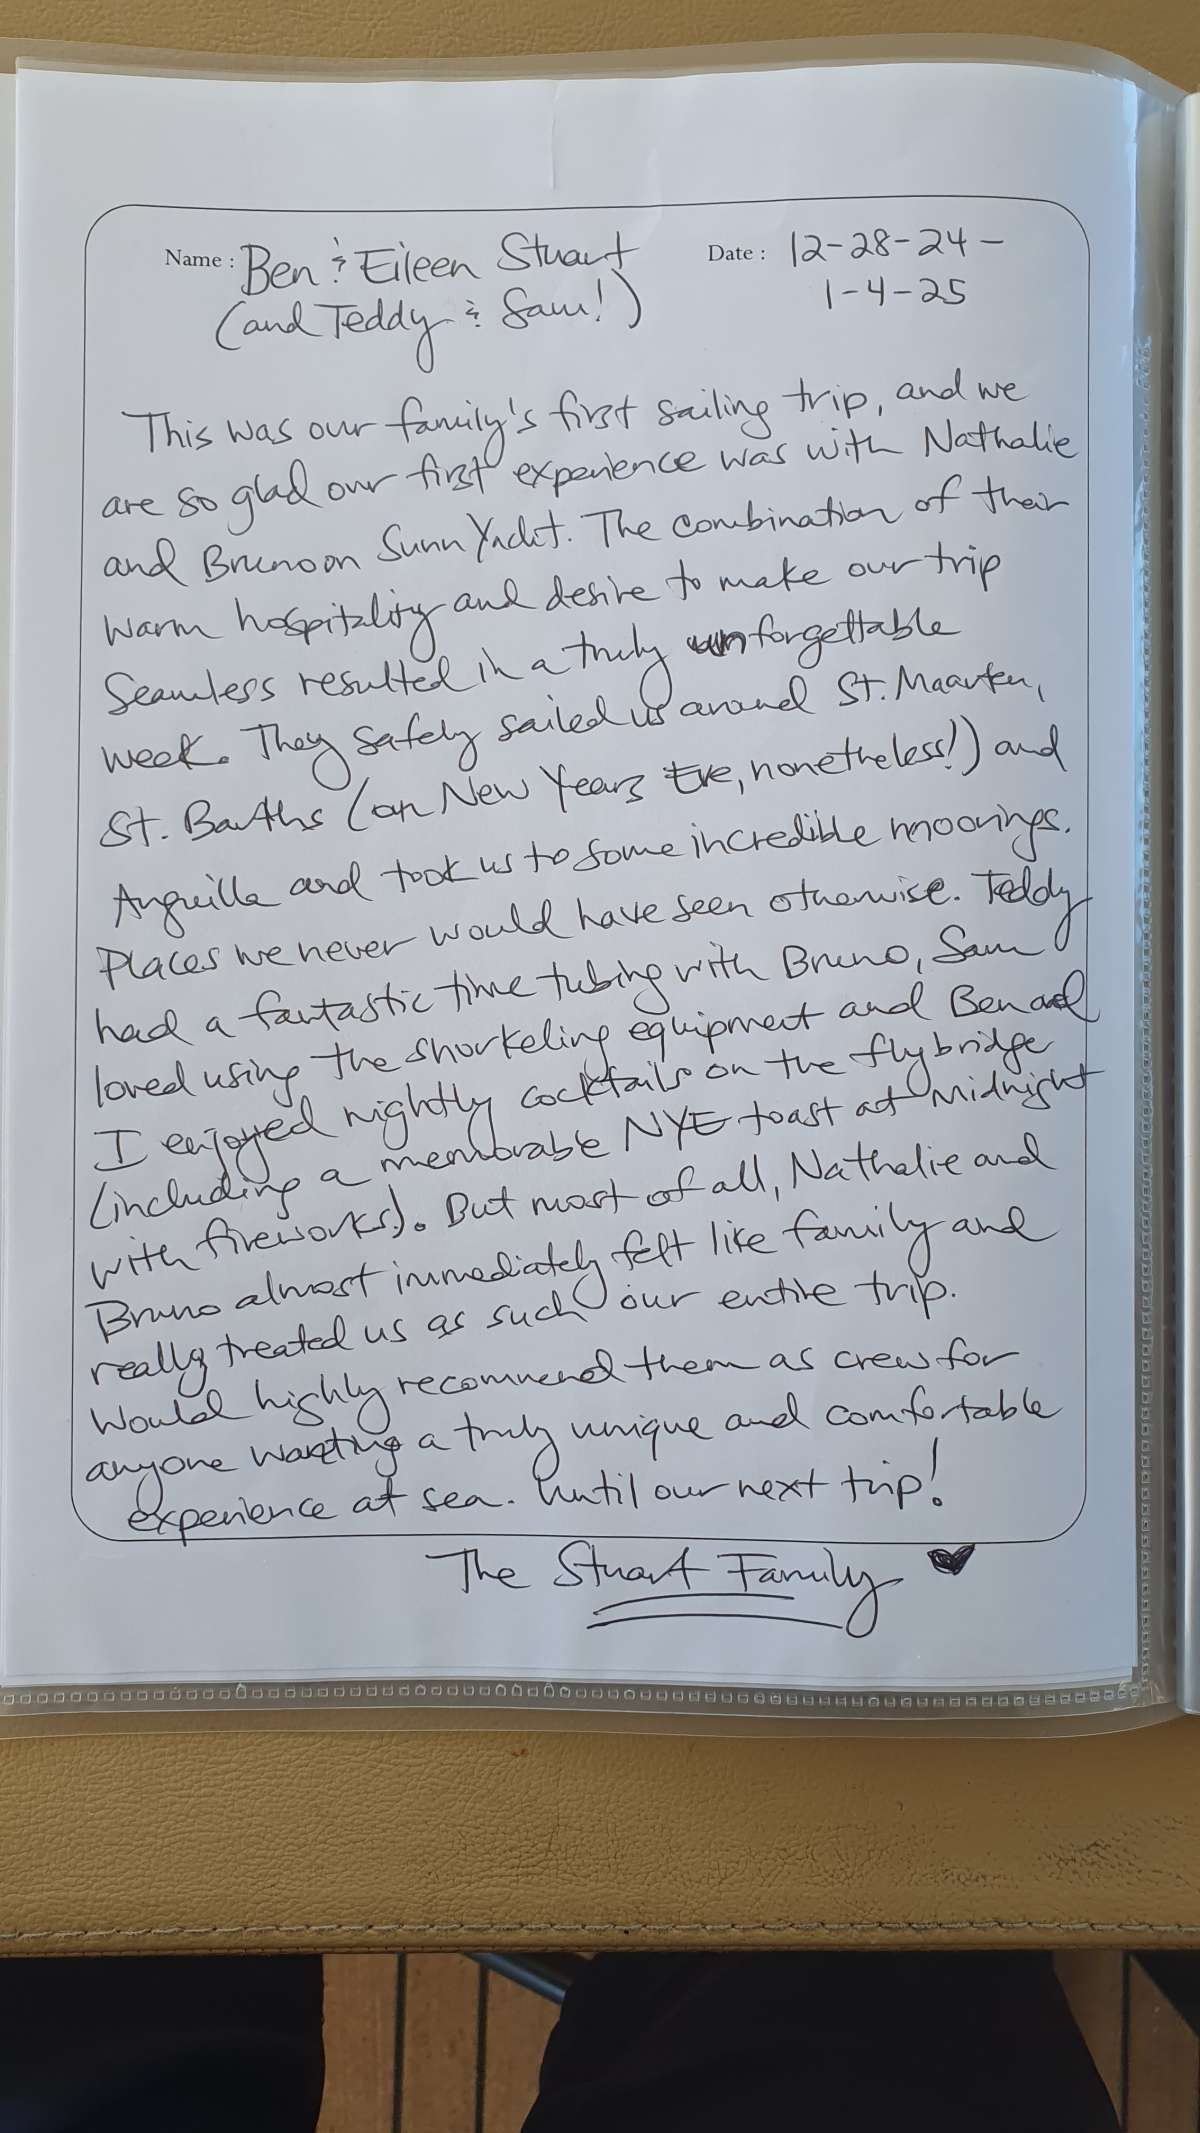 Name : Ben & Eileen Stuart
(and Teddy & Sam!)
Date : 12-28-24 -
1-4-25
This was our family's first sailing trip, and we
are so glad our first experience was with Nathalie
and Bruno on Sunn Yacht. The combination of their
warm hospitality and desire to make our trip
seamless resulted in a truly unforgettable
week. They safely sailed us around St. Maarten,
St. Barths (on New Years Eve, nonetheless!) and
Anguilla and took us to some incredible moorings.
Places we never would have seen otherwise. Teddy
had a fantastic time tubing with Bruno, Sam
loved using the snorkeling equipment and Ben and
I enjoyed nightly cocktails on the flybridge
(including a memorable NYE toast at midnight
with fireworks). But most of all, Nathalie and
Bruno almost immediately felt like family and
really treated us as such our entire trip.
Would highly recommend them as crew for
anyone wanting a truly unique and comfortable
experience at sea. Until our next trip!
The Stuart Family ♥